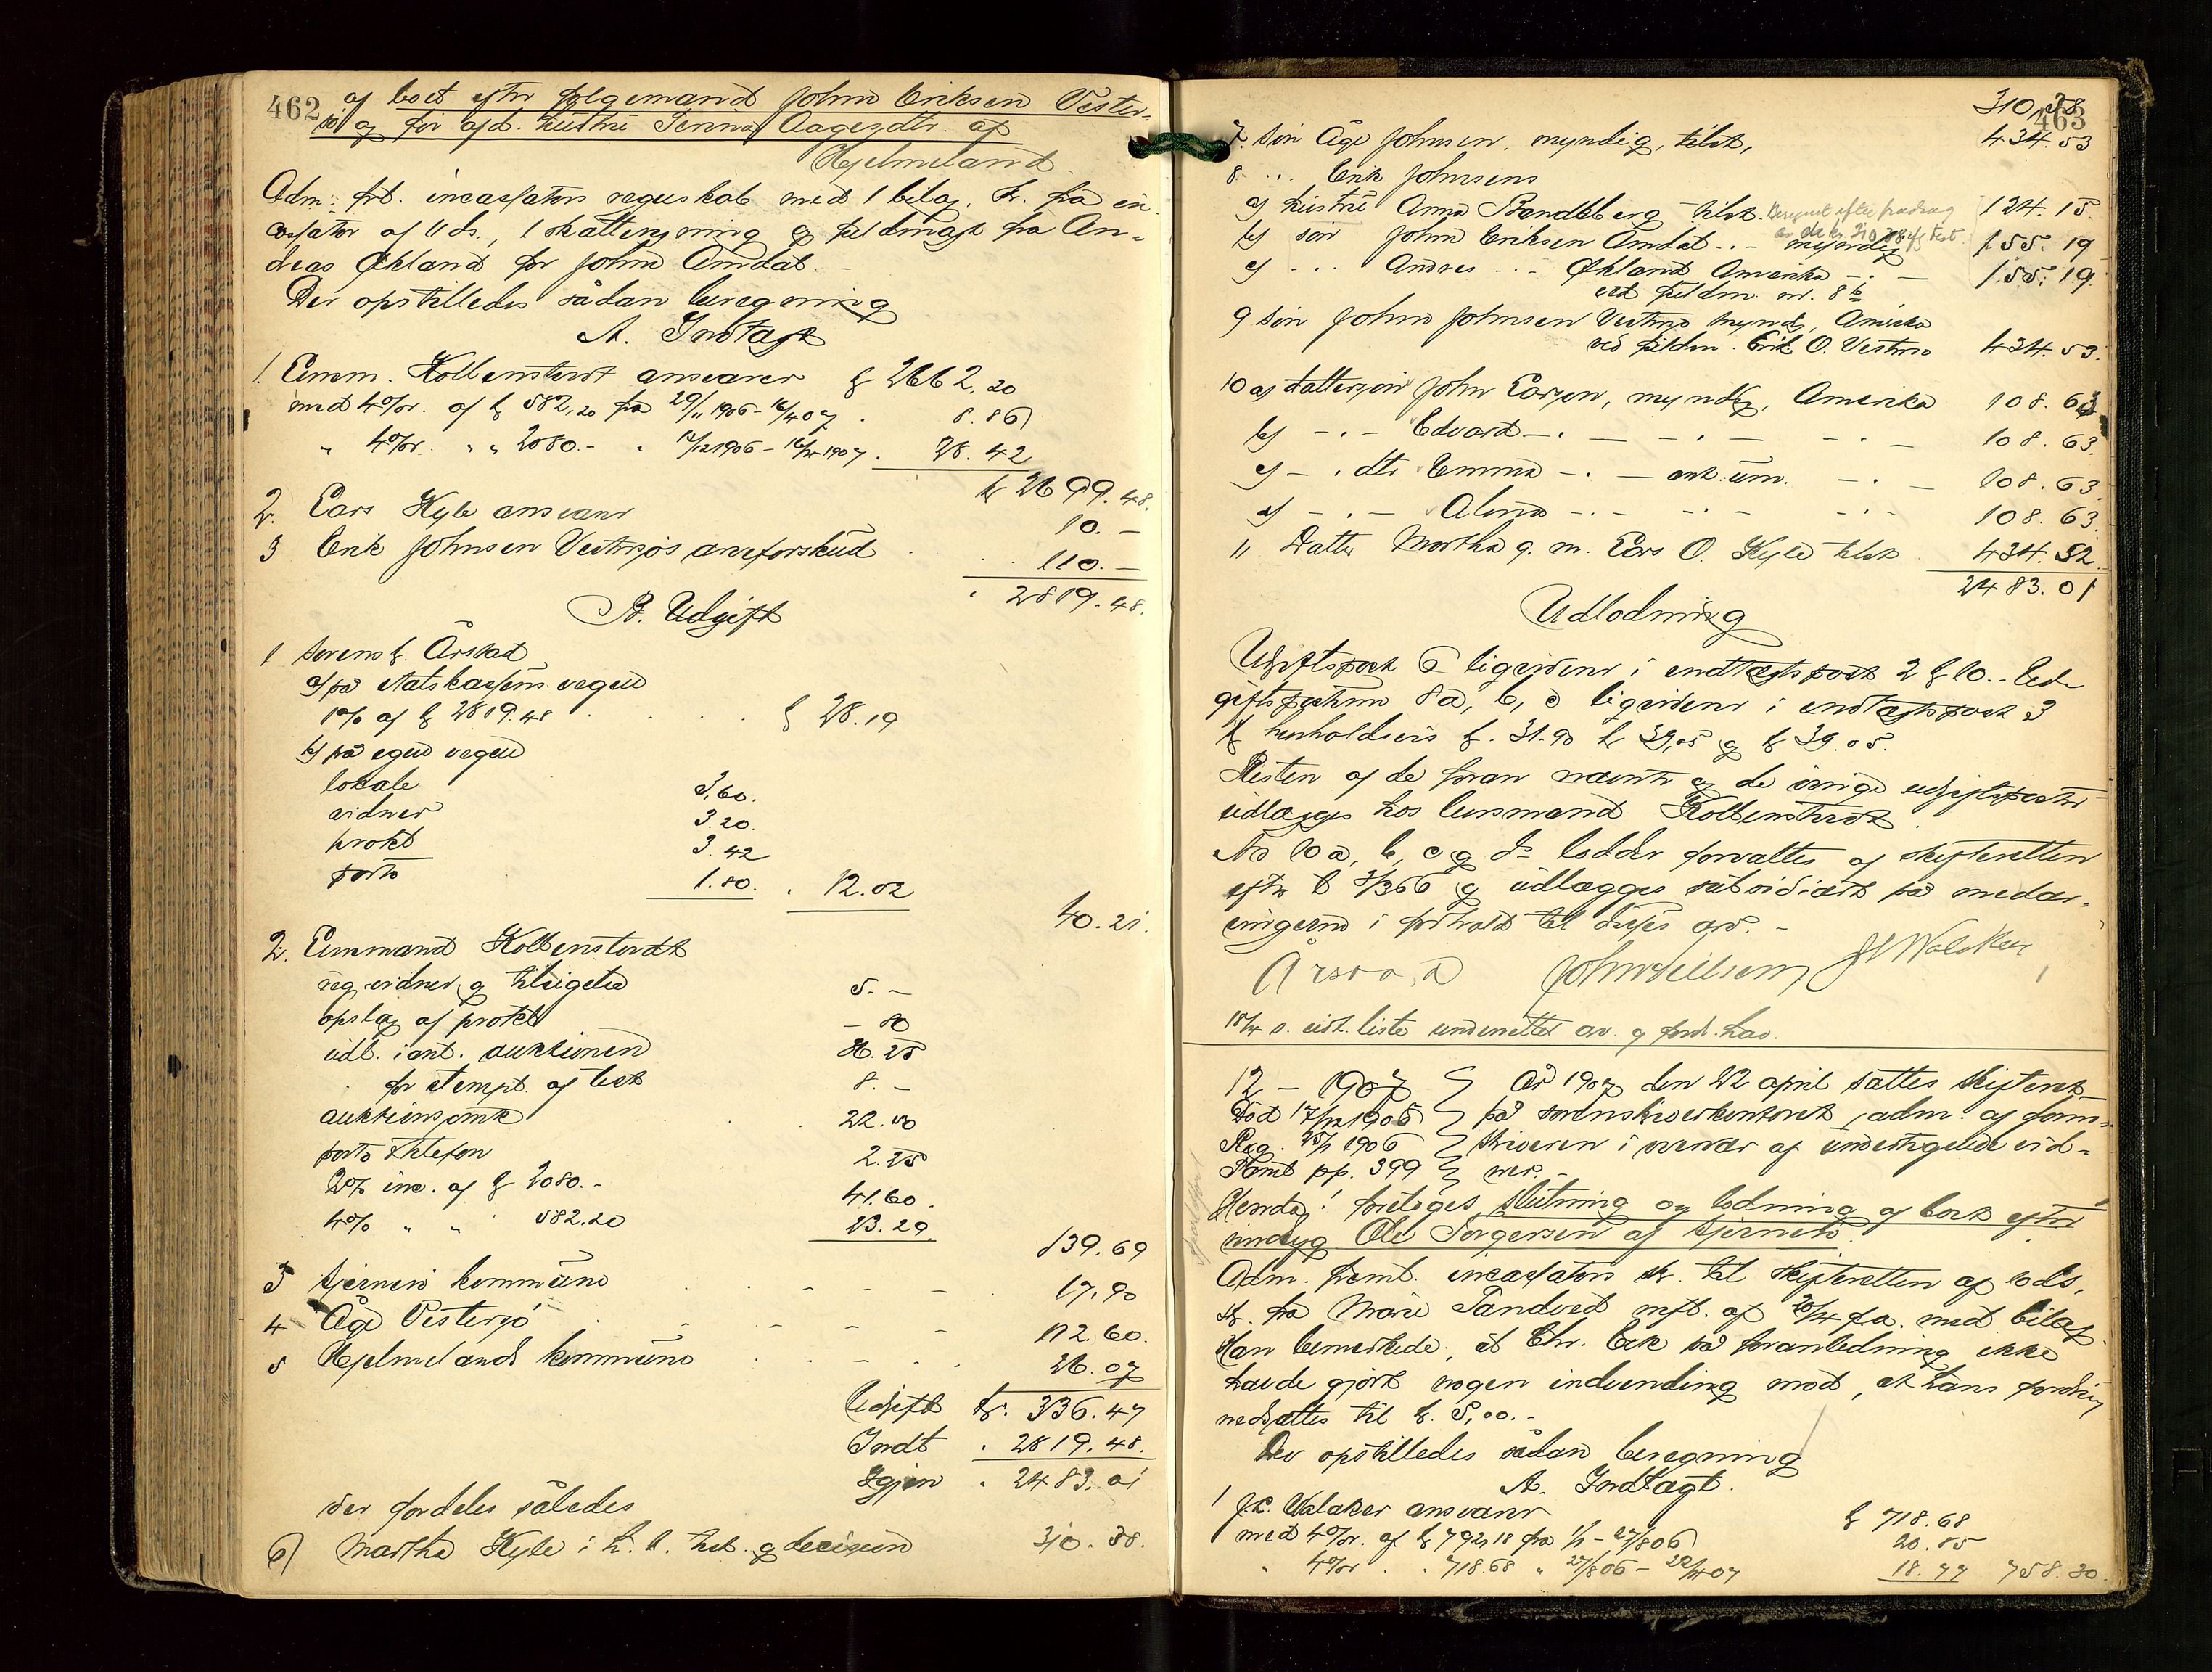 462
af boet efter følgemand John Eriksen Vester-
sø og før afd. hustru Serina Aagesdtr. af
Hjelmeland
Adm. frl. incassators regnskab med 1 bilag, skr. fra in-
cassator af 11 ds., 1 skattengning og fuldmagt fra An-
dreas Økland for John Amdal.
Der opstilledes sådan beregning
A. Indtægt
1. Lensm. Kolbenstvedt ansvarer kr 2662,20
med 4% r. af kr 582,20 fra 29/11 1906 - 16/4 07 . 8.86
" 4% r. " " 2080.- " 12/12 1906 - 16/4 1907 . 28.42
kr 2699.48.
2. Lars Hyle ansvarer 10.-
3 Erik Johnsen Vestersjøs arveforskud . . . 110.-
. 2819.48.
B. Udgift
1 Sorenskr. Årstad
a) på statskassens vegne
1% af kr 2819.48 . . . . kr 28.19
b) på egne vegne
lokale 3,60.
vidner 3.20.
protkl 3.42
porto 1.80. . 12.02
40.21.
2. Lensmand Kolbenstvedt
reg. vidner og tilsigelse 5.-
opslag af protkl - 80
udl. i ant. auktionen 36.25
for stempl. af test 8.-
auktionsomk . . 22.50
porto & telefon 2.25
2% inc. af kr 2080.- 41.60.
4% " " 582.20 23.29
139.69
3 Sjernerø kommune . - - - . 17.90
4 Åge Vestersjø . - - - - 112.60.
5 Hjelmelands kommune . . - - . 26.07
Udgift kr. 336.47
Indt . 2819.48.
Igjen . 2483.01
der fordeles således
6) Martha Hyle i h. t. test. og decision 310.38.
463
310,38
7 Søn Åge Johnsen, myndig, tilst, 434.53
8 .. Erik Johnsens
a) hustru Anna Brandsberg tilst. 124.15.
Beregnet efter fradrag
av de kr. 310,38 if. test.
b) søn John Eriksen Amdal .. - myndig 155.19
c) ... Andreas ... Økland Amerika - . - 155.19.
ved fuldm. nr. 8 b
9 Søn John Johnsen Vestersø mynd., Amerika
ved fuldm. Erik O. Vestersø 434.53.
10 a) dattersøn John Larsen, myndig, Amerika 108.63
b) - . - Edvard - . - - . - - . - 108.63.
c) - . dtr Emma - . - ant. um. - . - 108.63.
d) - . - Alma - . - - . - - . - 108.63.
11 Datter Martha g. m. Lars O. Hyle tilst 434.52.
2483.01
Udlodning
Udgiftspost 6 ligeoverfor i indtægtspost 2 kr 10.- Ud-
giftsposterne 8a, b, c ligeoverfor i indtægtspost 3
kr henholdsvis kr. 31.90 kr 39,05 og kr 39.05.
Resten af de foran nævnte og de øvrige udgiftsposter
udlægges hos lensmand Kolbenstvedt.
No 10 a, b, c og d's lodder forvaltes af skifteretten
efter og udlægges subsidiært på medar-
vingerne i forhold til disses arv. -
Årstad John Nilsen J L Walaker
18/4 s. udl. liste underrettet arv. og ford. hav.
12 - 1907 } År 1907 den 22 april sattes skifteret
Død 17/12 1905 } på sorenskriverkontoret, adm. af sorn-
Reg. 25/1 1906 } skriveren i overvær af undertegnede vid-
Saml pp. 399 } ner. -
Hendag: foretoges slutning og lodning af boet efter
indbyg Ole Torgersen af Sjernerø.
Adm. freml. incassators skr. til skifteretten af 10 ds.,
skr. fra Marie Tandved mft. af 20/4 f.a. med bilag.
Han bemerkede, at Chr. Eek på foranledning ikke
havde gjort nogen indvending mod, at hans fordring
nedsattes til kr. 5,00.-
Der opstilledes sådan beregning
A. Indtægt.
1 J.L. Walaker ansvarer kr 718.68
med 4% r. af kr 792,18 fra 1/1 - 27/8 06 20.85
" 4% r . . 718.68 " 27/8 06 - 22/4 07 18.77 758.30.